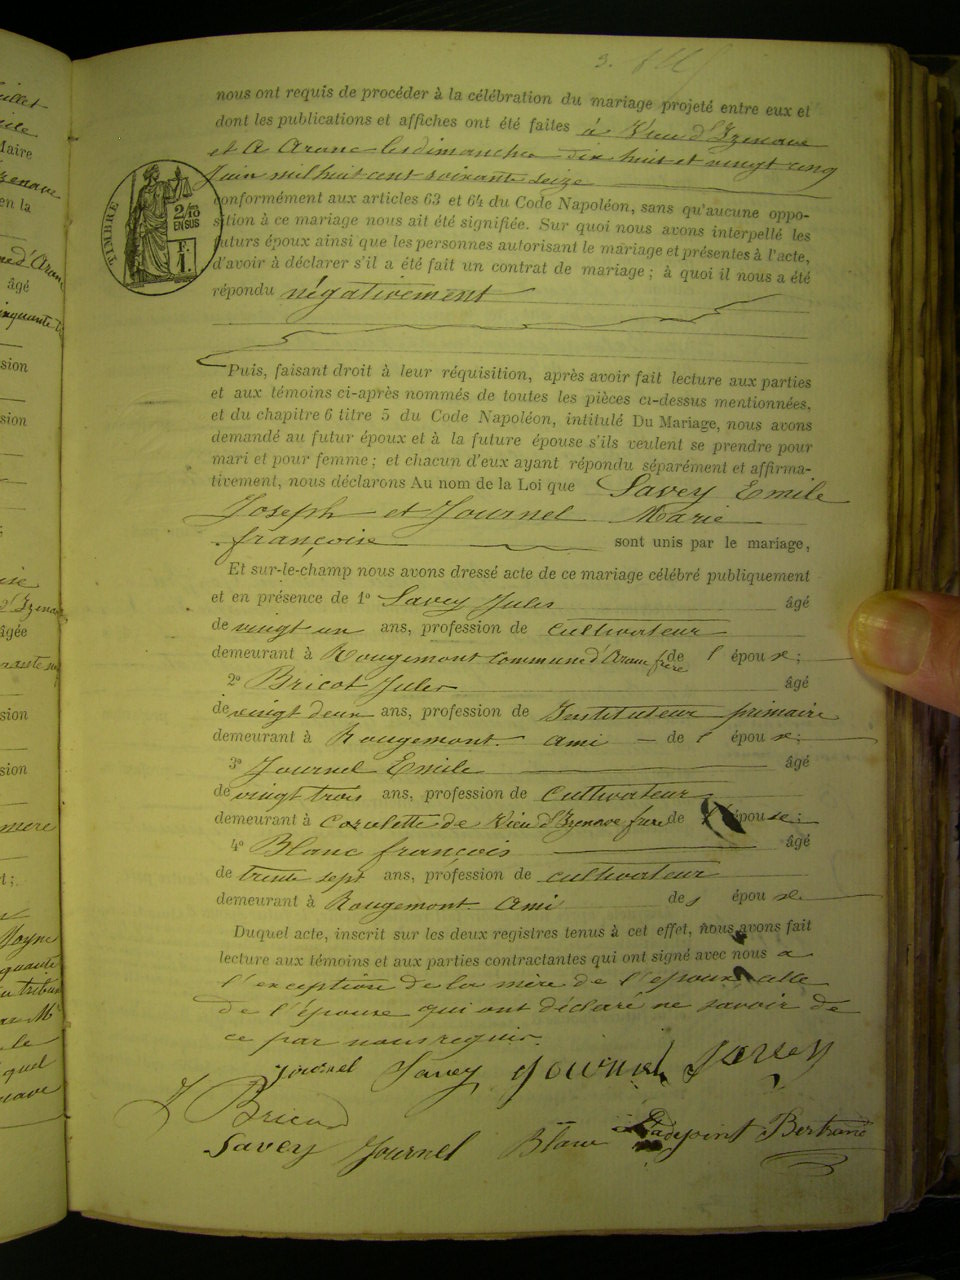 3.
nous ont requis de procéder à la célébration du mariage projeté entre eux et
dont les publications et affiches ont été faites à Vieu d'Izenave
et à Aranc les dimanches dix huit et vingt cinq
Juin mil huit cent soixante seize
TIMBRE 2/10 EN SUS F. 1.
conformément aux articles 63 et 64 du Code Napoléon, sans qu'aucune oppo-
sition à ce mariage nous ait été signifiée. Sur quoi nous avons interpellé les
futurs époux ainsi que les personnes autorisant le mariage et présentes à l'acte,
d'avoir à déclarer s'il a été fait un contrat de mariage ; à quoi il nous a été
répondu négativement
Puis, faisant droit à leur réquisition, après avoir fait lecture aux parties
et aux témoins ci-après nommés de toutes les pièces ci-dessus mentionnées,
et du chapitre 6 titre 5 du Code Napoléon, intitulé Du Mariage, nous avons
demandé au futur époux et à la future épouse s'ils veulent se prendre pour
mari et pour femme ; et chacun d'eux ayant répondu séparément et affirma-
tivement, nous déclarons Au nom de la Loi que Savey Emile
Joseph et Journel Marie
françoise sont unis par le mariage,
Et sur-le-champ nous avons dressé acte de ce mariage célébré publiquement
et en présence de 1° Savey Jules âgé
de vingt un ans, profession de cultivateur
demeurant à Rougemont Commune d'Aranc frère de l'époux ;
2° Bricot Jules âgé
de vingt deux ans, profession de Instituteur primaire
demeurant à Rougemont ami de l'époux ;
3° Journel Emile âgé
de vingt trois ans, profession de cultivateur
demeurant à Corulette de Vieu d'Izenave frere de épouse ;
4° Blanc françois âgé
de trente sept ans, profession de cultivateur
demeurant à Rougemont ami des époux
Duquel acte, inscrit sur les deux registres tenus à cet effet, nous avons fait
lecture aux témoins et aux parties contractantes qui ont signé avec nous a
l'exception de la mère de l'époux celle
de l'épouse qui ont déclaré ne savoir de
ce par nous requis.
Journel Savey Journel Savey
J Bricot
Savey Journel Blanc L'adjoint Bertrand